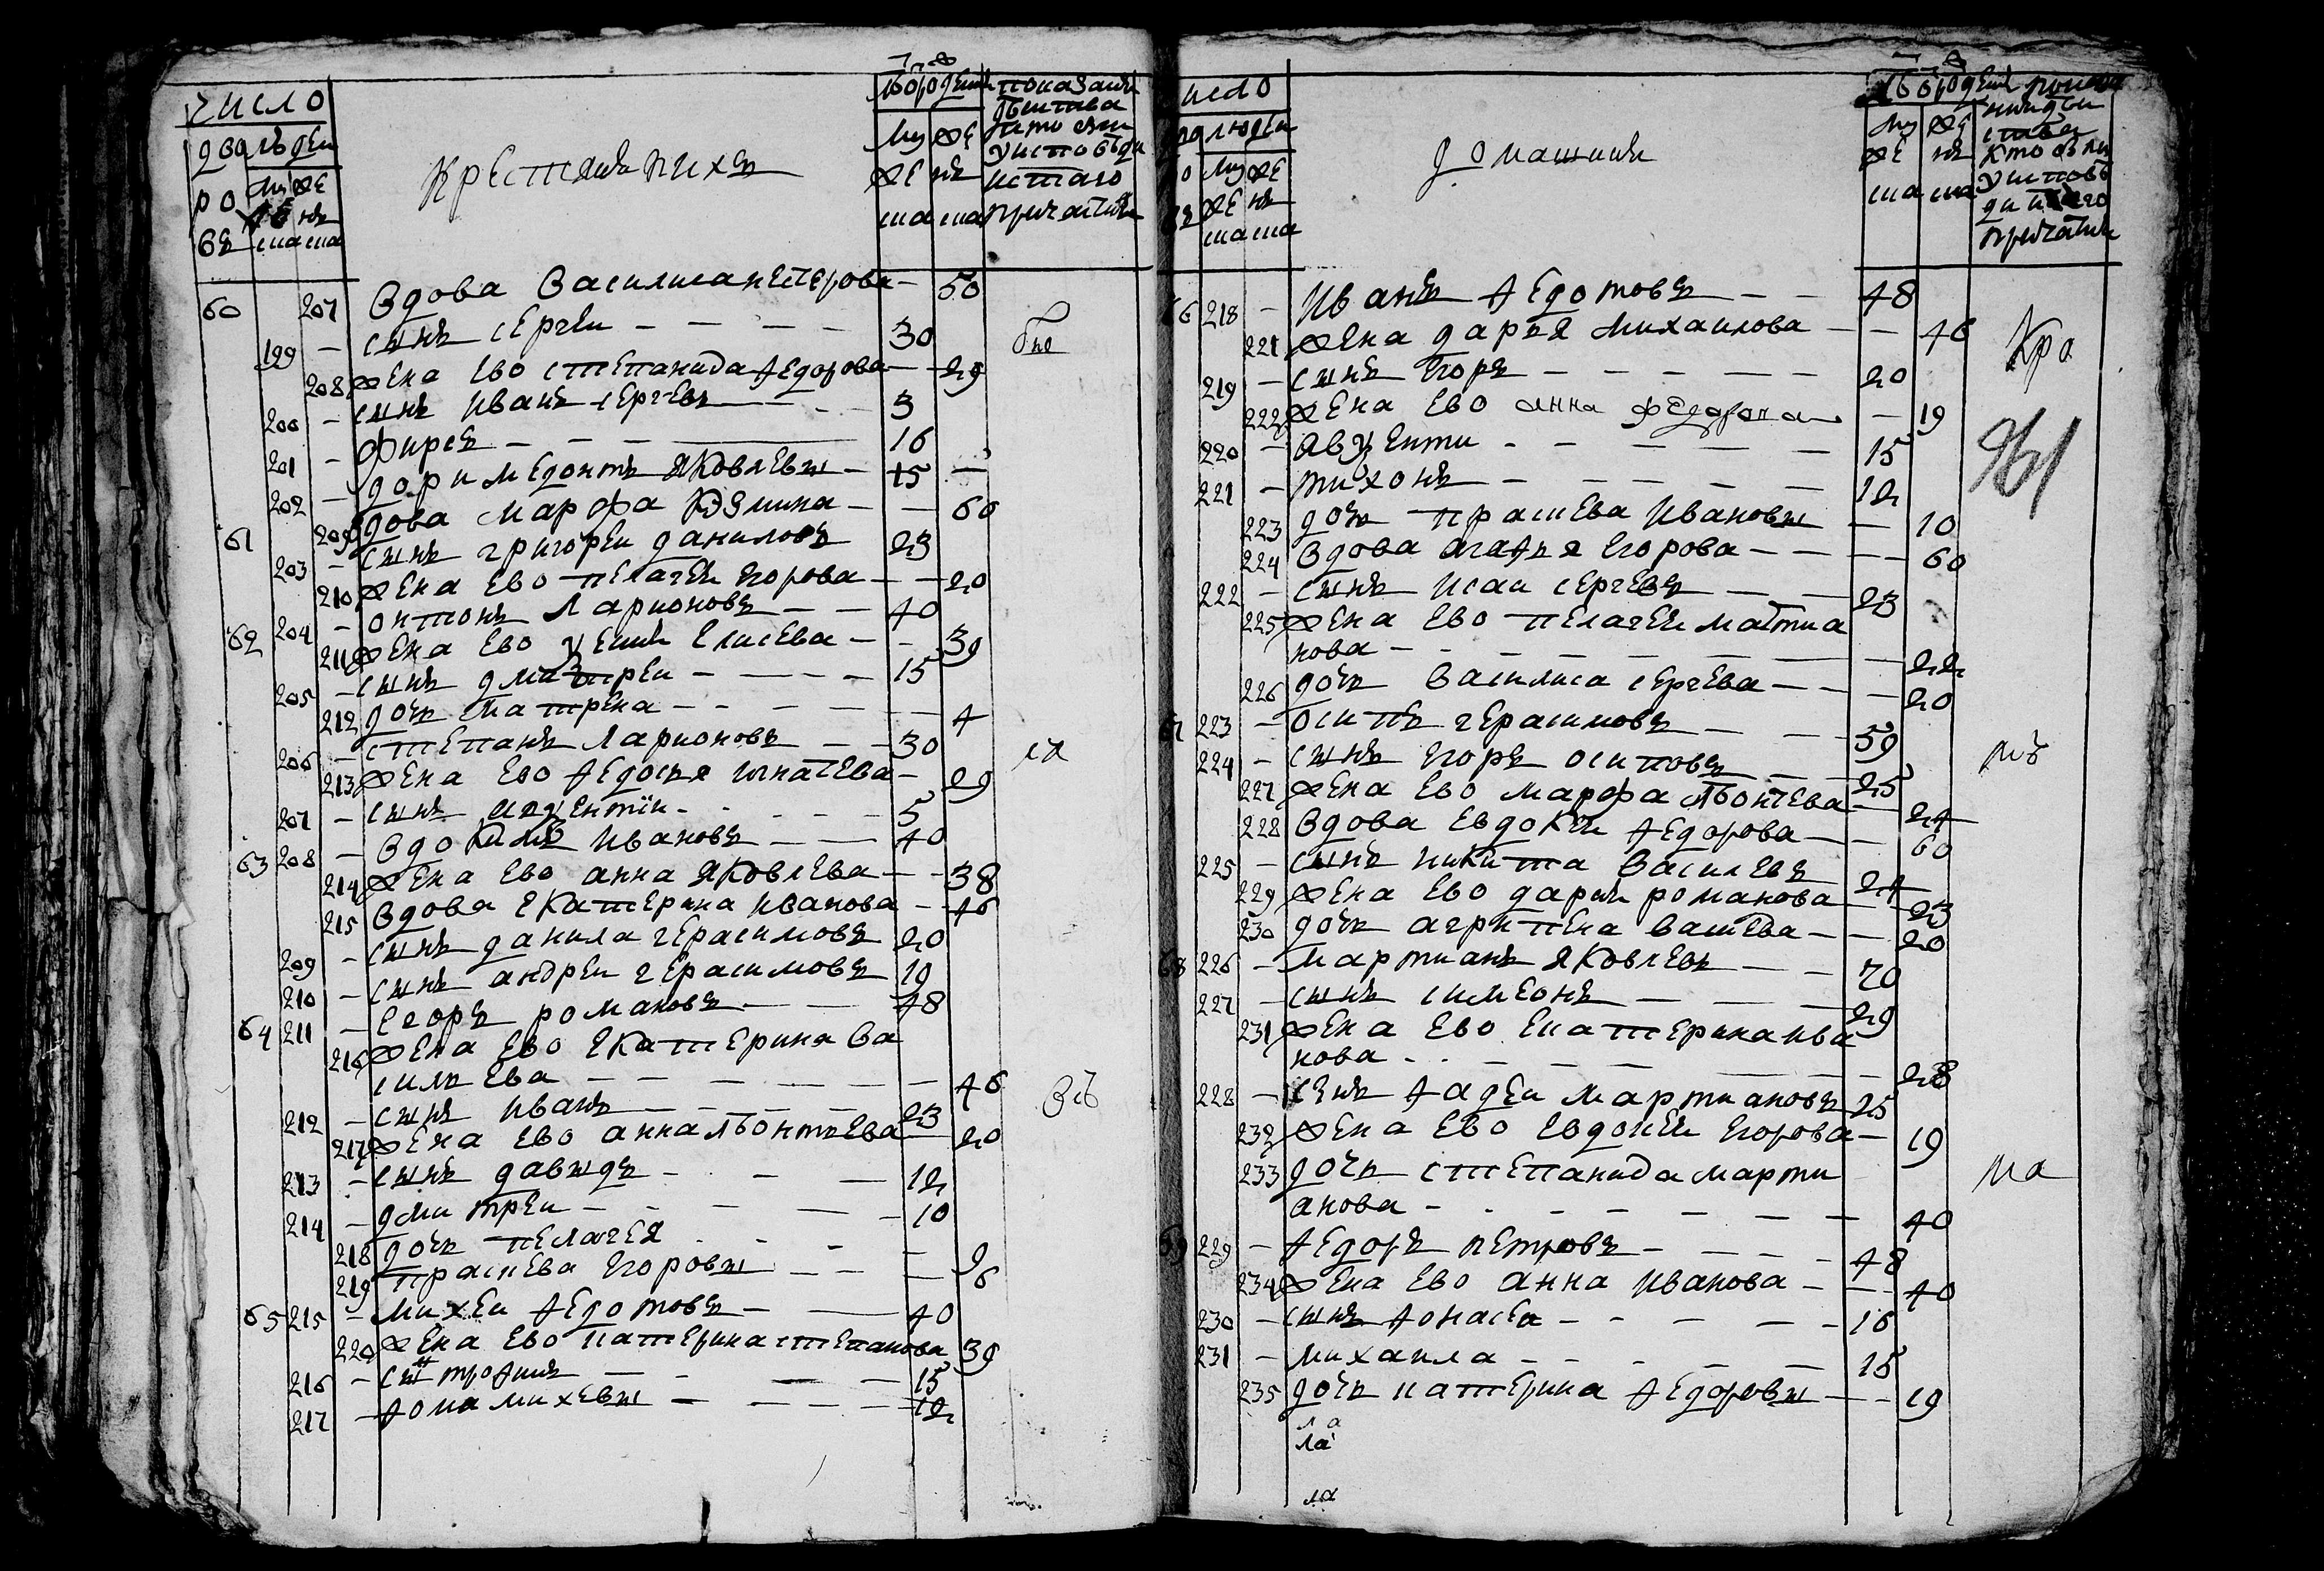 число
дворовъ
людеи
мужеска
женска
крестьяне и ихъ
от рождения
мужеска
женска
показание действа кто были у исповеди и с таго причастия
60 207 вдова василиса нестерова — 50
199 — сынъ сергеи — 30
208 жена ево степанида ѳедорова — 29
200 — сынъ иванъ сергевъ — 3
201 — фирсъ — 16
202 — доримедонтъ яковлевы — 15
61 209 вдова марфа козмина — 60
203 — сынъ григореи даниловъ 23
210 жена ево пелагея егорова — 20
62 204 — онтонъ ларионовъ — 40
211 жена ево ксения елисева — 39
205 — сынъ дмитреи — 15
212 дочь матрена — 4
206 — степанъ ларионовъ — 30
213 жена ево ѳедосья игнатева — 29
207 — сынъ — 5
63 208 — вдокимъ ивановъ — 40
214 жена ево анна яковлева — 38
215 вдова екатерина иванова — 46
209 — сынъ данила герасимовъ 20
210 — сынъ андреи герасимовъ 19
64 211 — егоръ романовъ — 48
216 жена ево екатерина ва
сильева — 46
212 — сынъ иванъ — 23
217 жена ево анна лѣонтьева — 20
213 — сынъ давыдъ — 12
214 — дмитреи — 10
218 дочь пелагея — 9
219 прасковья егоровы — 6
65 215 — михеи ѳедотовъ — 40
220 жена ево катерина степанова 39
216 — сынъ трофимъ — 15
217 — ѳома михевы — 12
число
людеи
мужеска
женска
домашния
от рождения
мужеска
женска
кто были у исповеди и с таго причастия
66 218 — иванъ ѳедотовъ — 48
221 жена дарья михаилова — 46
219 — сынъ егоръ — 20
222 жена ево анна федорова — 19
220 — авксенти — 15
221 — тихонъ — 12
223 дочь праскева ивановы — 10
224 вдова агаѳья егорова — 60
222 — сынъ исаи сергевъ — 23
225 жена ево пелагея мартиа
нова — 22
226 дочь василиса сергева — 20
67 223 — осипъ герасимовъ — 59
224 — сынъ егоръ осиповъ — 25
227 жена ево марфа лѣонтева — 24
228 вдова евдокия ѳедорова — 60
225 — сынъ никита василевъ 24
229 жена ево дария романова — 23
230 дочь агрипена васильева — 20
68 226 — мартианъ яковлевъ — 70
227 — сынъ симеонъ — 29
231 жена ево екатерина ива
нова — 28
228 — сынъ ѳадеи мартиановъ 25
232 жена ево евдокия егорова — 19
233 дочь степанида марти
анова — 40
69 229 — ѳедоръ петровъ — 48
234 жена ево анна иванова — 40
230 — сынъ ѳонасеи — 16
231 — михаила — 15
235 дочь катерина ѳедоровы — 19
ла
ла